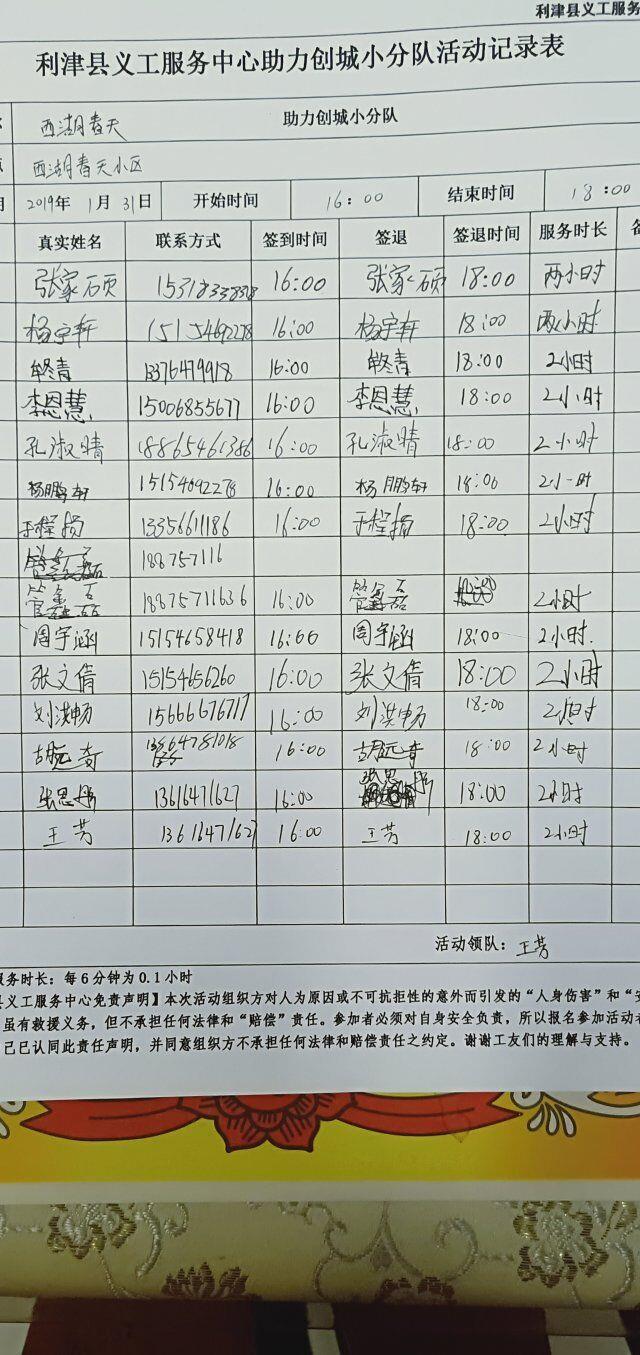 利津县义工服务
利津县义工服务中心助力创城小分队活动记录表
西湖春天 助力创城小分队
西湖春天小区
2019年 1月 31日 开始时间 16:00 结束时间 18:00
真实姓名 联系方式 签到时间 签退 签退时间 服务时长 备
张家硕 15318338318 16:00 张家硕 18:00 两小时
杨宇轩 15154692278 16:00 杨宇轩 18:00 两小时
13376479918 16:00 18:00 2小时
李恩慧 15006855677 16:00 李恩慧 18:00 2小时
孔淑晴 18865461386 16:00 孔淑晴 18:00 2小时
杨鹏轩 15154692278 16:00 杨鹏轩 18:00 2小时
于程扬 13356611186 16:00 于程扬 18:00 2小时
188757116
管鑫磊 18875711636 16:00 管鑫磊 2小时
周宇涵 15154658418 16:00 周宇涵 18:00 2小时.
张文倩 15154656260 16:00 张文倩 18:00 2小时
刘洪畅 15666676717 16:00 刘洪畅 18:00 2小时
胡远奇 13564781018 16:00 胡远奇 18:00 2小时
张思 13616471627 16:00 张思 18:00 2小时
王芳 13616471627 16:00 王芳 18:00 2小时
活动领队: 王芳
服务时长：每6分钟为0.1小时
县义工服务中心免责声明】本次活动组织方对人为原因或不可抗拒性的意外而引发的“人身伤害”和“
虽有救援义务，但不承担任何法律和“赔偿”责任。参加者必须对自身安全负责，所以报名参加活动者
己已认同此责任声明，并同意组织方不承担任何法律和赔偿责任之约定。谢谢工友们的理解与支持。